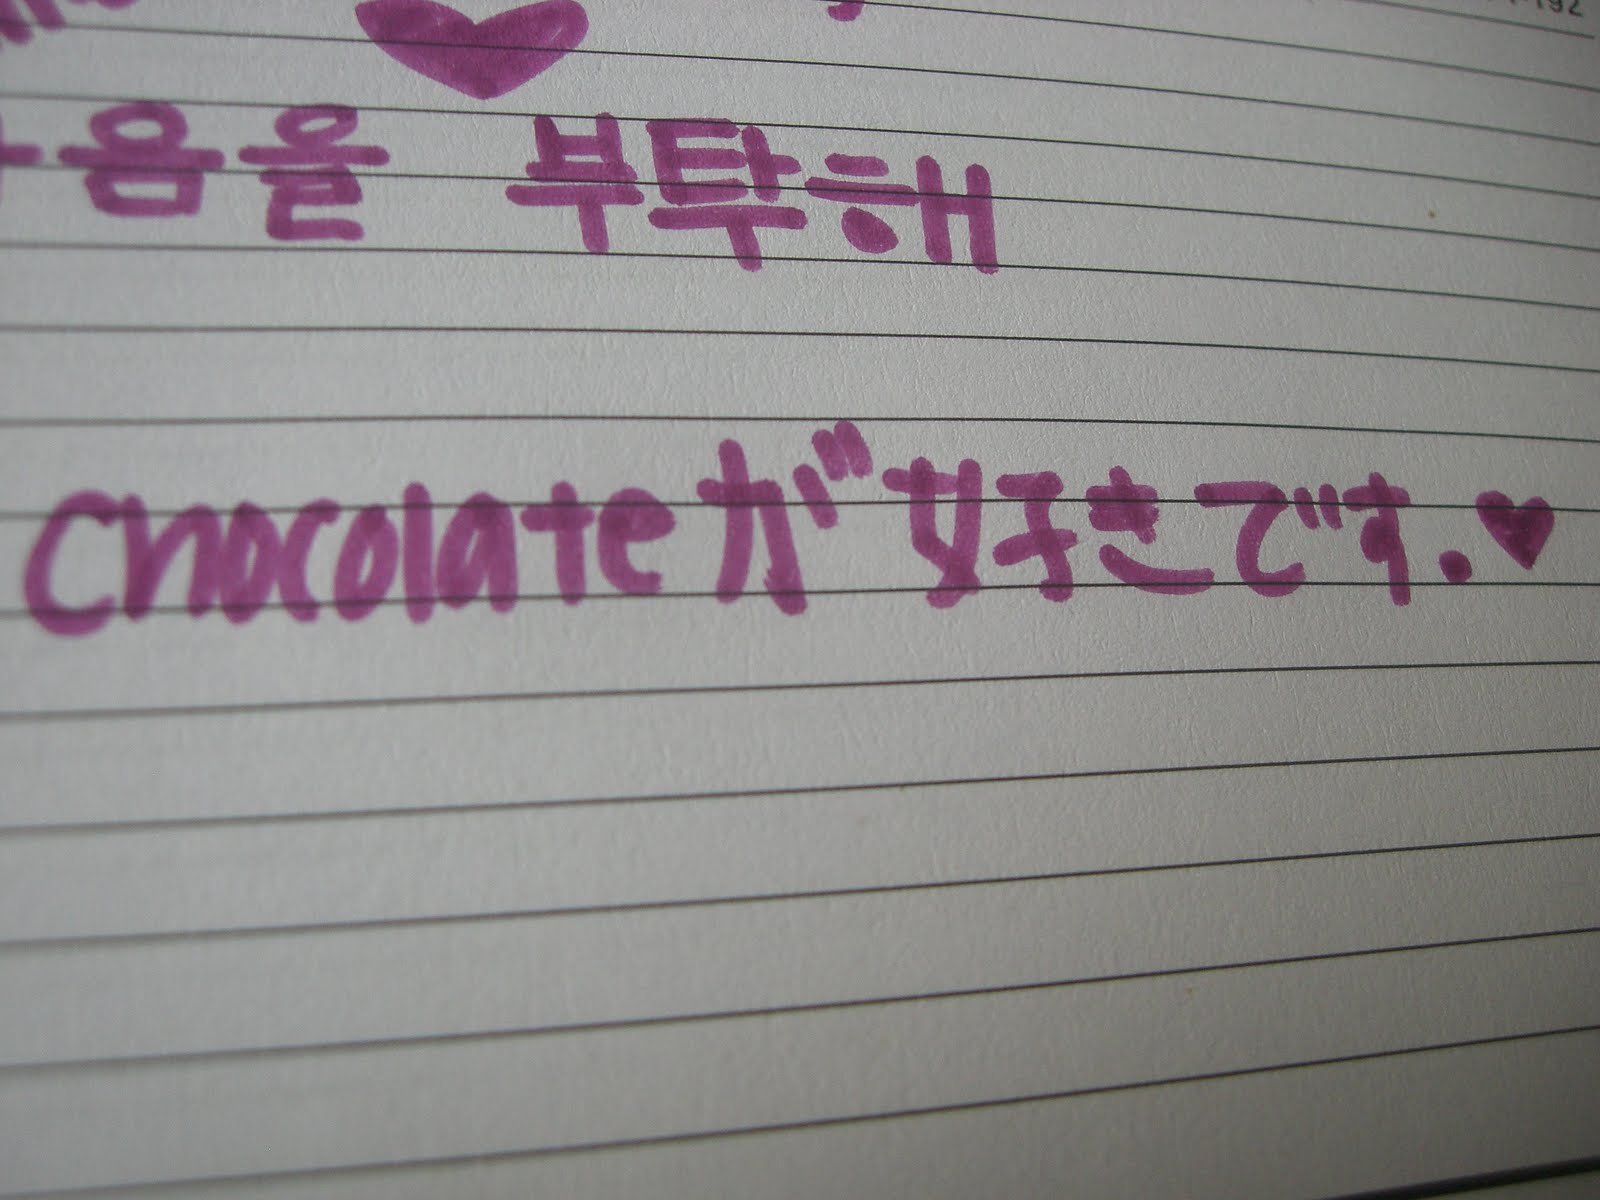 음을 부탁해
chocolateが好きです.♥